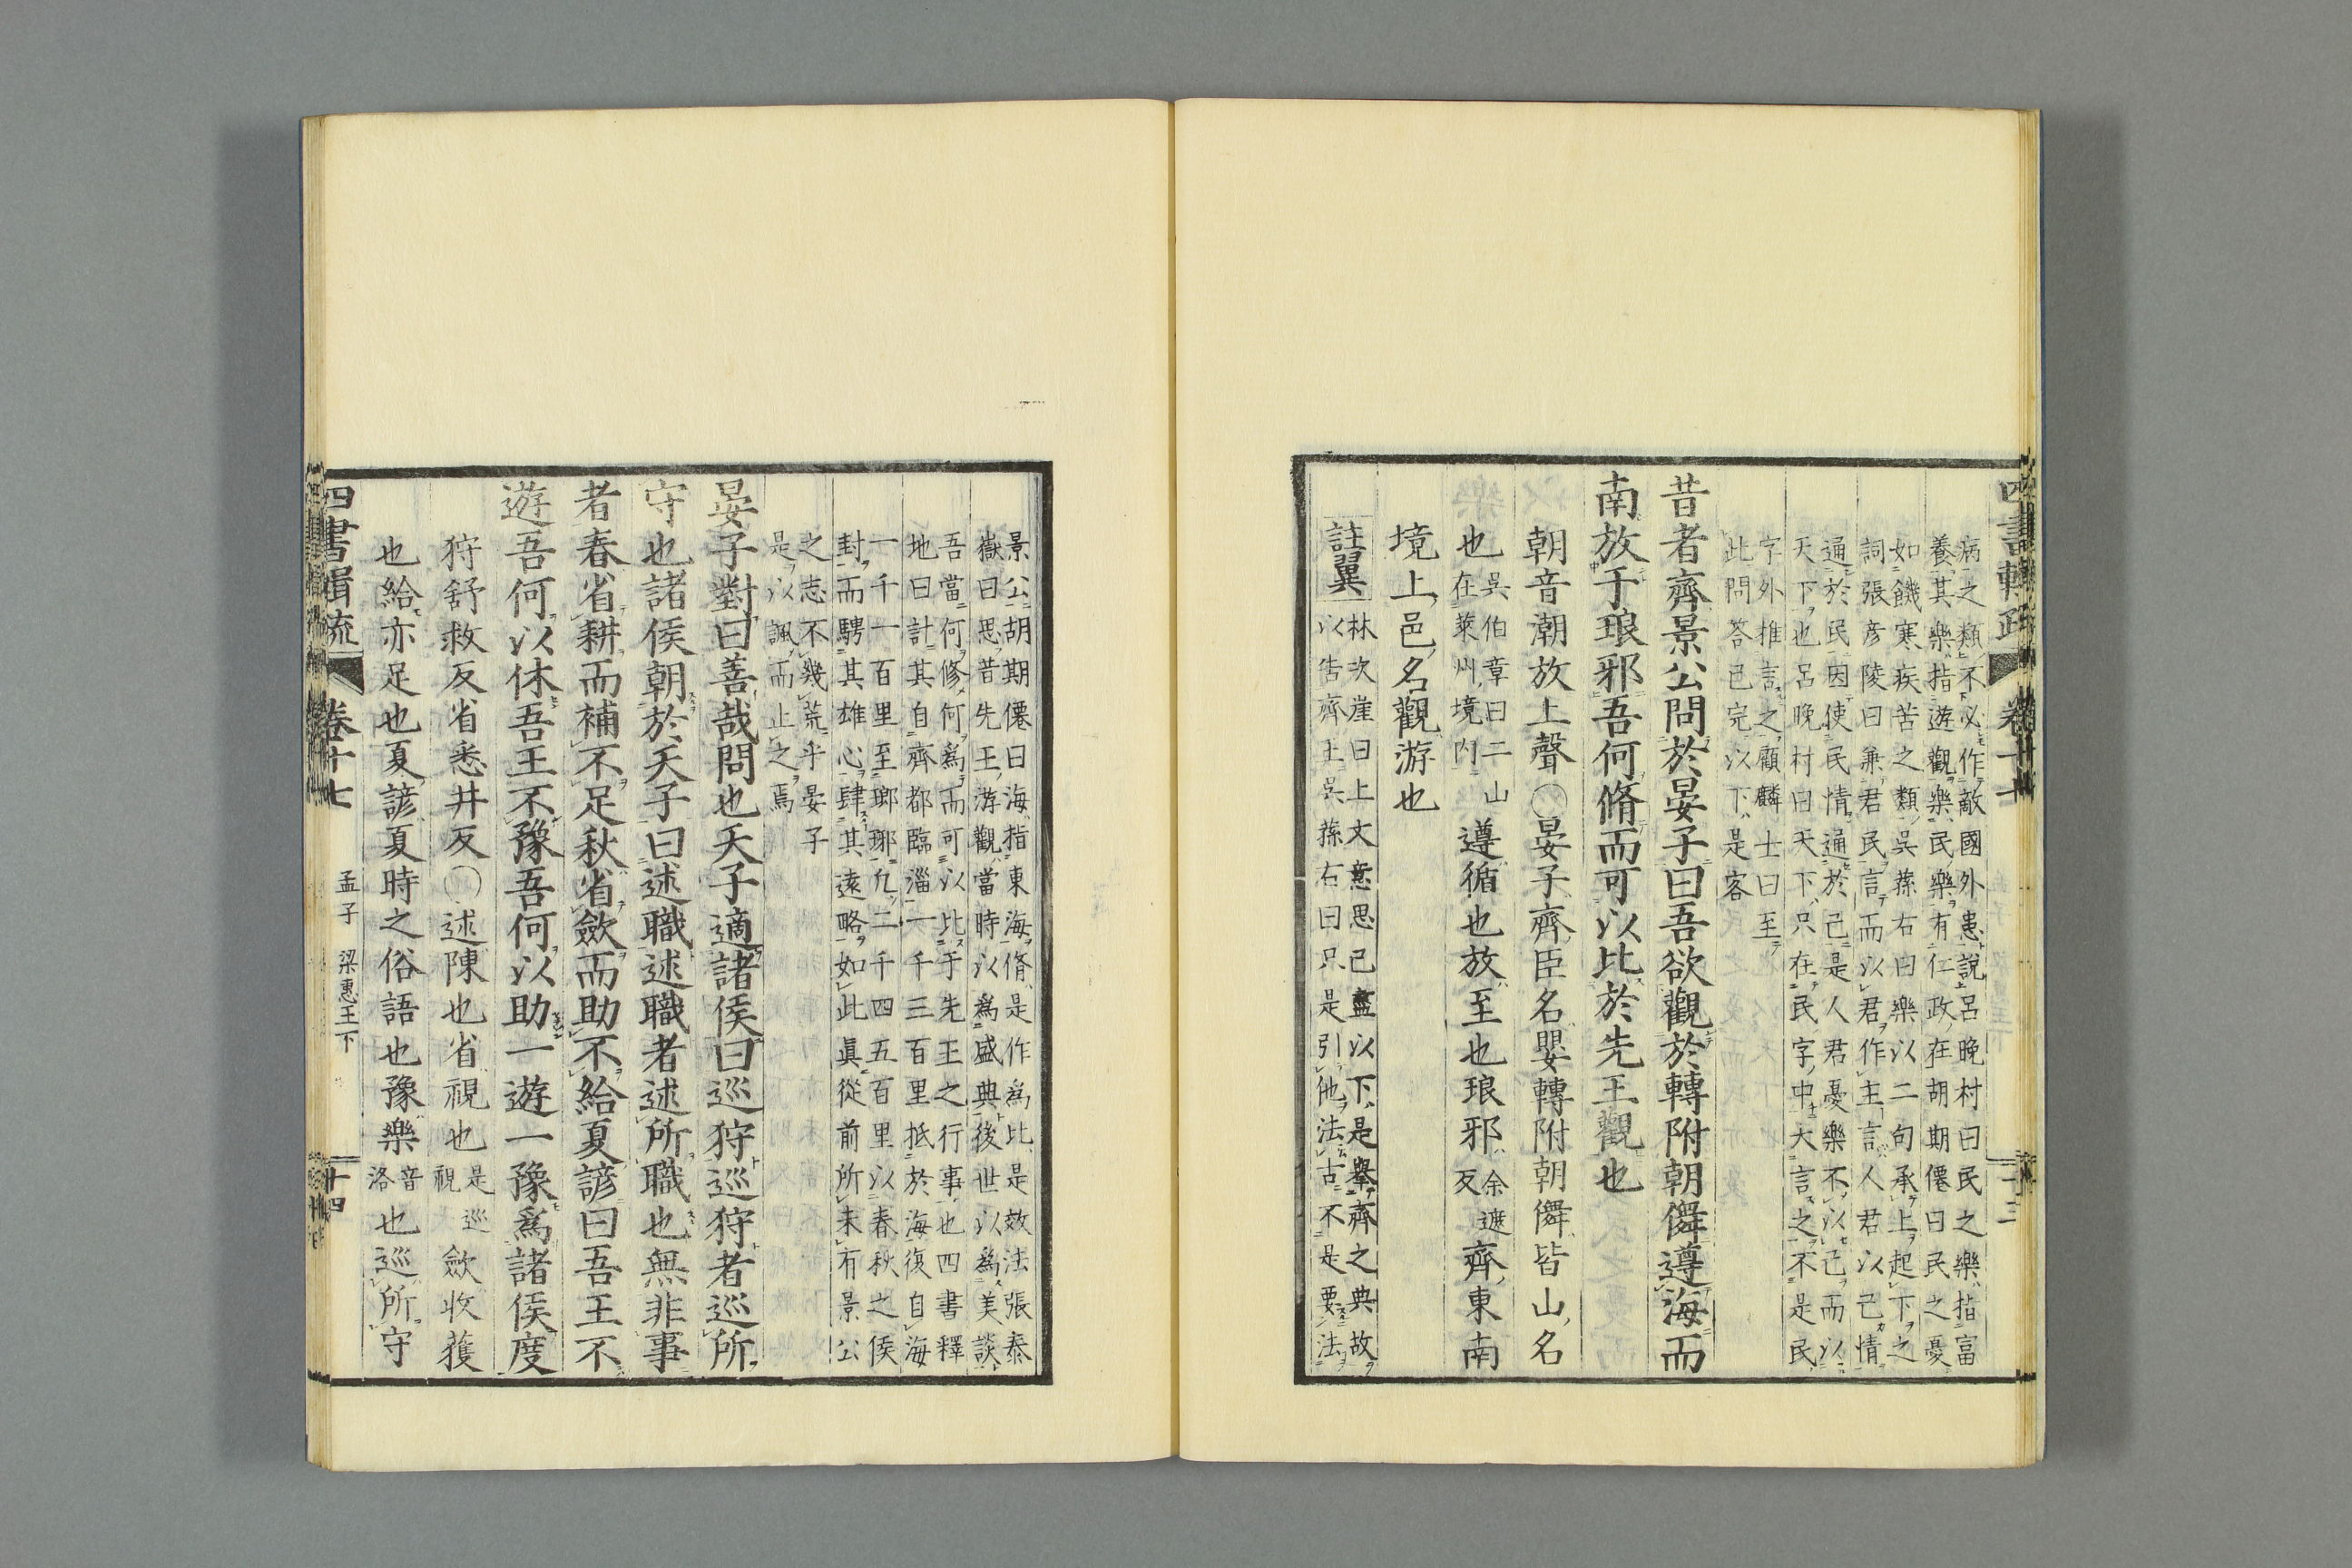 病之類不必作敵國外患說呂晚村曰民之樂指富
養其樂指遊觀樂民樂有仁政在胡期僊曰民之憂
如饑寒疾苦之類吳蓀右曰樂以二句承上起下之
詞張彥陵曰兼君民言而以君作主言人君以己情
通於民因使民情通於己是人君憂樂不以己而以
天下也呂晚村曰天下只在民字中大言之不是民
字外推言之顧麟士曰至
此問答已完以下是客
昔者齊景公問於晏子曰吾欲觀於轉附朝儛遵海而
南放于琅邪吾何脩而可以比於先王觀也
朝音潮放上聲〇晏子齊臣名嬰轉附朝儛皆山名
也吳伯章曰二山在萊州境內遵循也放至也琅邪余遮反齊東南
境上邑名觀游也
註翼
林次崖曰上文意思已盡以下是舉齊之典故
以告齊王吳蓀右曰只是引他法古不是要法
景公胡期僊曰海指東海脩是作為比是效法張泰
嶽曰思昔先王游觀當時以為盛典後世以為美談
吾當何修何為而可以比于先王之行事也四書釋
地曰計其自齊都臨淄一千三百里抵於海復自海
一千一百里至瑯琊凡二千四五百里以春秋之侯
封而騁其雄心肆其遠略如此真從前所未有景公
之志不幾荒乎晏子
是以諷而止之焉
晏子對曰善哉問也天子適諸侯曰巡狩巡狩者巡所
守也諸侯朝於天子曰述職述職者述所職也無非事
者春省耕而補不足秋省斂而助不給夏諺曰吾王不
遊吾何以休吾王不豫吾何以助一遊一豫爲諸侯度
狩舒救反省悉井反〇述陳也省視也是巡視斂收穫
也給亦足也夏諺夏時之俗語也豫樂音洛也巡所守
四書輯疏 卷十七 孟子 梁惠王下 十四